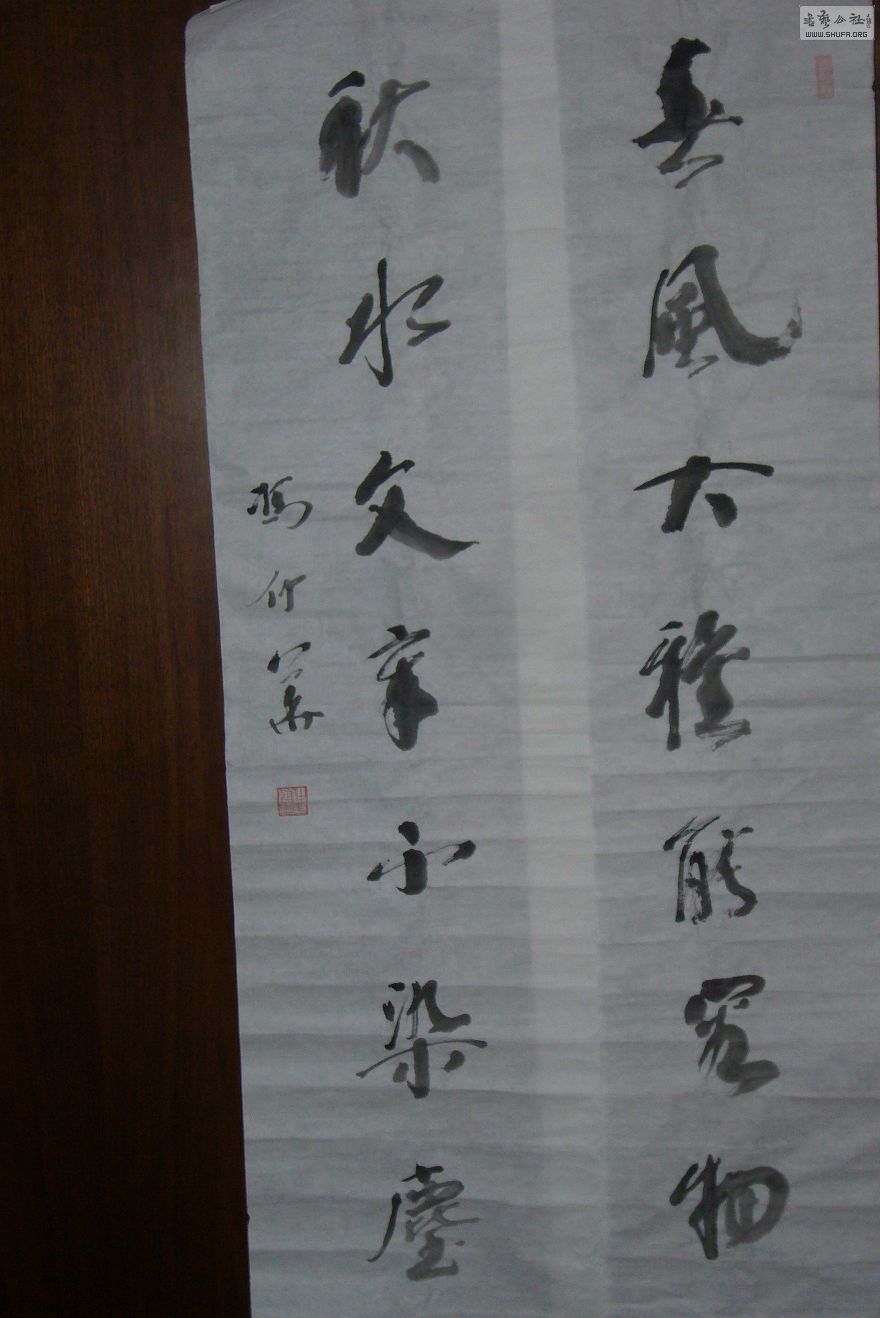 春風大雅能容物
秋水文章不染塵
馮仲華
書藝公社
WWW.SHUFA.ORG